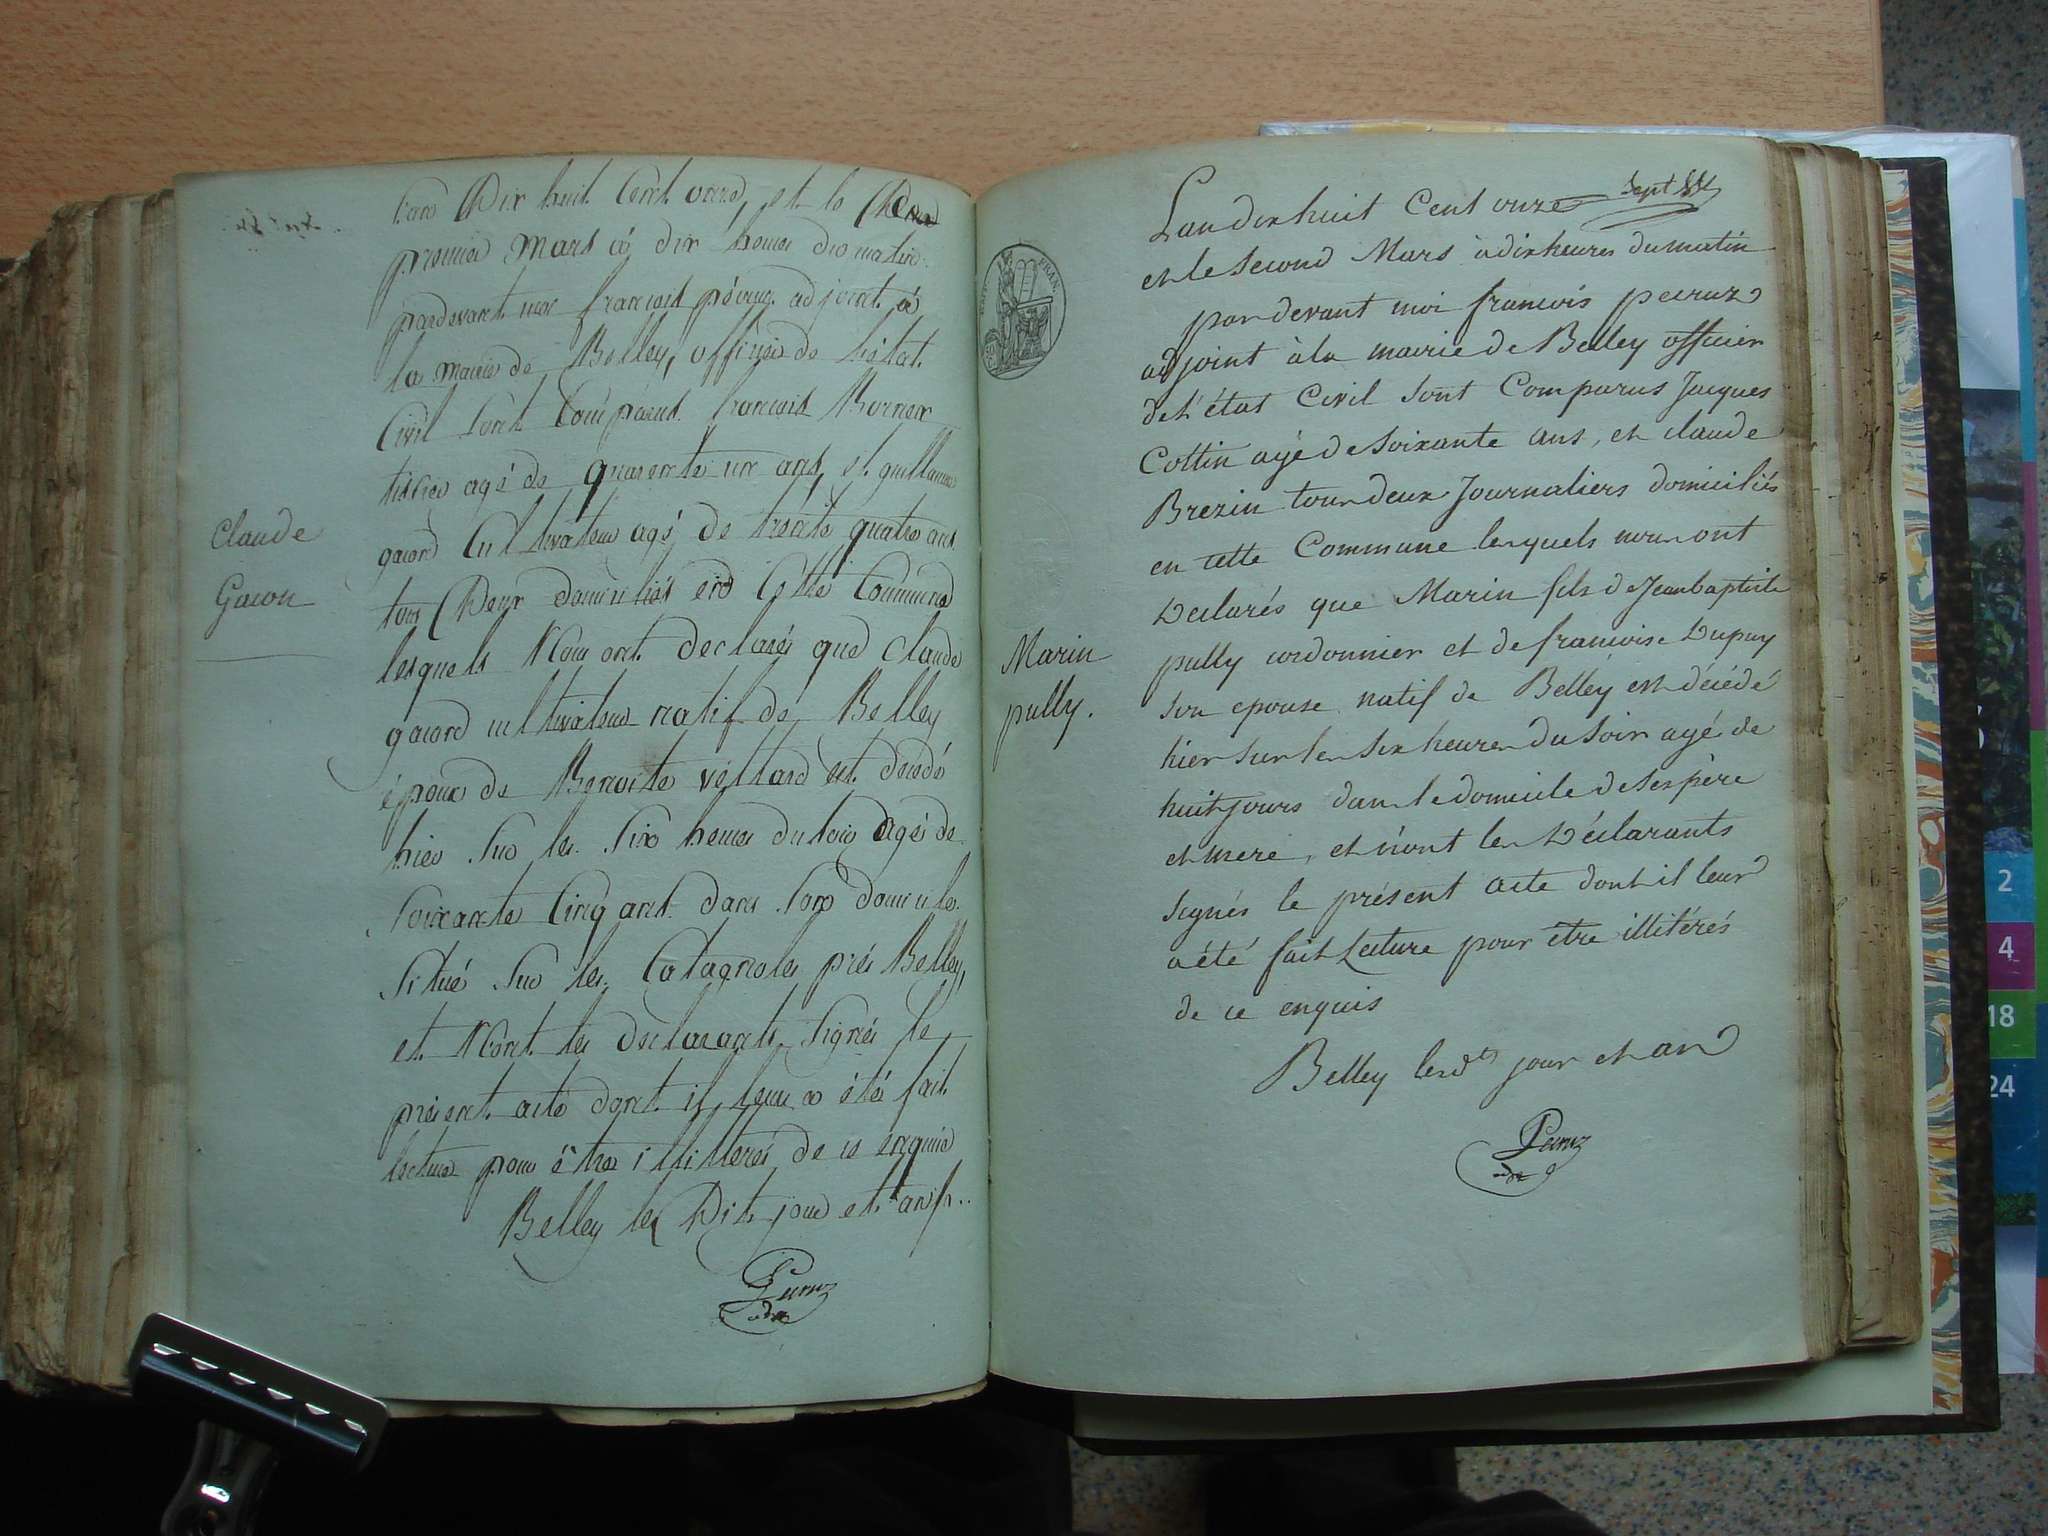 Claude
Gacon
L'an Dix huit Cent onze, et le
premier Mars à dix heures du matin
pardevant moi françois péeruz adjoint à
la mairie de Belley, officier de l'état
Civil sont Comparus françois Bornex
agé de quarente un ans, et guillaume
gacon Cultivateur agé de trente quatre ans
tous Deux domiciliés en Cette Commune
lesquels Nous ont déclarés que Claude
gacon cultivateur natif de Belley
époux de Benoite véttard est décédé
hier Sur les Six heures du soir agé de
Soixante Cinq ans dans son domicile
Situé Sur les Catagnoles près Belley,
et N'ont les declarants Signés le
présent acte dont il leur a été fait
lecture pour être illitterés de ce enquis
Belley les Dit jour et an
Peeruz
adt
L'an dix huit Cent onze
et le Second Mars à dix heures du matin
par devant moi françois peeruz
adjoint à la mairie de Belley officier
de l'état Civil sont Comparus Jacques
Cottin agé de Soixante ans, et claude
Brezin tous deux Journaliers domiciliés
en cette Commune lesquels nous ont
Déclarés que Marin fils de Jean baptiste
pully cordonnier et de francoise Dupuy
son epouse natif de Belley est décédé
hier sur les six heures du soir agé de
huit jours dans le domicile de ses père
et mere, et n'ont les Déclarants
signés le présent acte dont il leur
a été fait Lecture pour être illitérés
de ce enquis
Belley les dts jour et an
Peeruz
adt
Sept
FRAN.
Marin
pully.
2
4
18
24